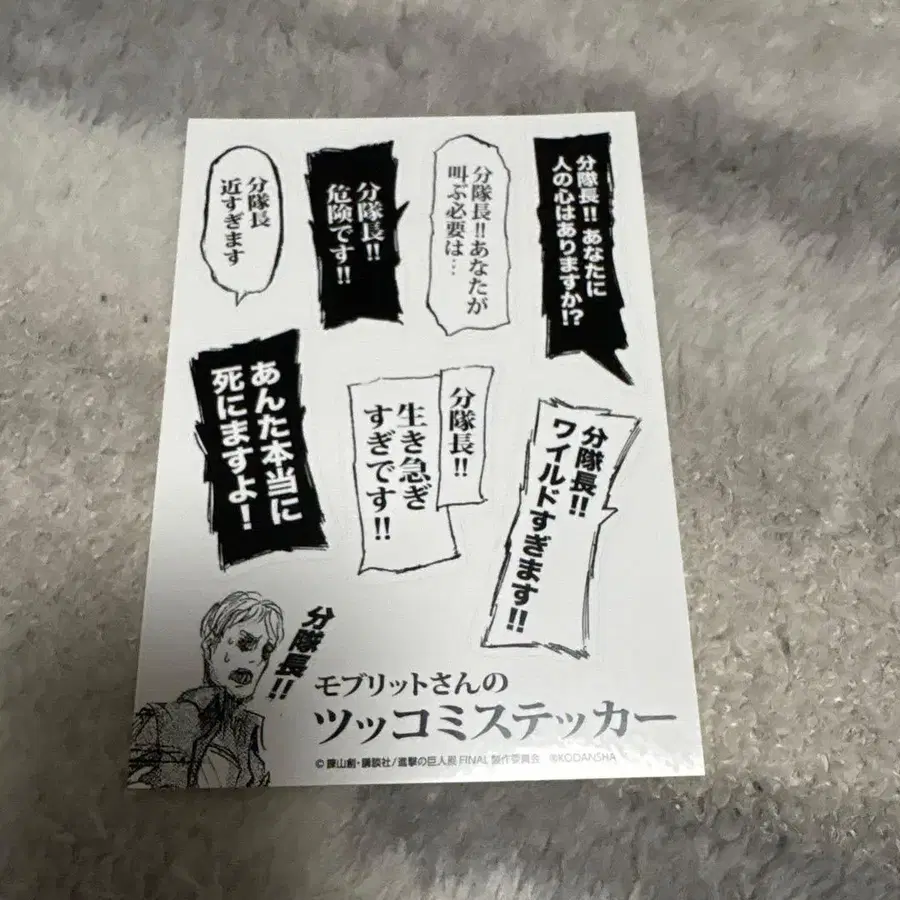 分隊長!! あなたに
人の心はありますか!?
分隊長!!あなたが
叫ぶ必要は…
分隊長!!
危険です!!
分隊長
近すぎます
分隊長!!
ワイルドすぎます!!
分隊長!!
生き急ぎ
すぎです!!
あんた本当に
死にますよ!
分隊長!!
モブリットさんの
ツッコミステッカー
© 諫山創・講談社/進撃の巨人展 FINAL 製作委員会 ®KODANSHA